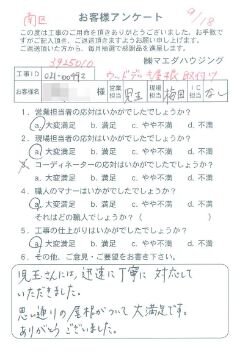 南区
お客様アンケート
9/18
この度は工事のご用命を頂きありがとうございました。お手数で
すがご記入頂き、ご返送頂きますようお願い申し上げます。
ご返送頂いた方から、毎月抽選で感謝品を進呈します。
3925010
㈱マエダハウジング
工事ID 021-00992 ウッドデッキ屋根取付け
お客様名 様 営業担当 児玉 現場担当 梅田 IC担当 なし
1. 営業担当者の応対はいかがでしたでしょうか?
a. 大変満足 b. 満足 c. やや不満 d. 不満
2. 現場担当者の応対はいかがでしたでしょうか?
a. 大変満足 b. 満足 c. やや不満 d. 不満
3. コーディネーターの応対はいかがでしたでしょうか?
a. 大変満足 b. 満足 c. やや不満 d. 不満
4. 職人のマナーはいかがでしたでしょうか?
a. 大変満足 b. 満足 c. やや不満 d. 不満
それはどの職人でしょうか? ( )
5. 工事の仕上がりはいかがでしたでしょうか?
a. 大変満足 b. 満足 c. やや不満 d. 不満
6. その他、ご意見・ご要望をお書き下さい。
児玉さんには、迅速に丁寧に対応して
いただきました。
思い通りの屋根がついて大満足です。
ありがとうございました。